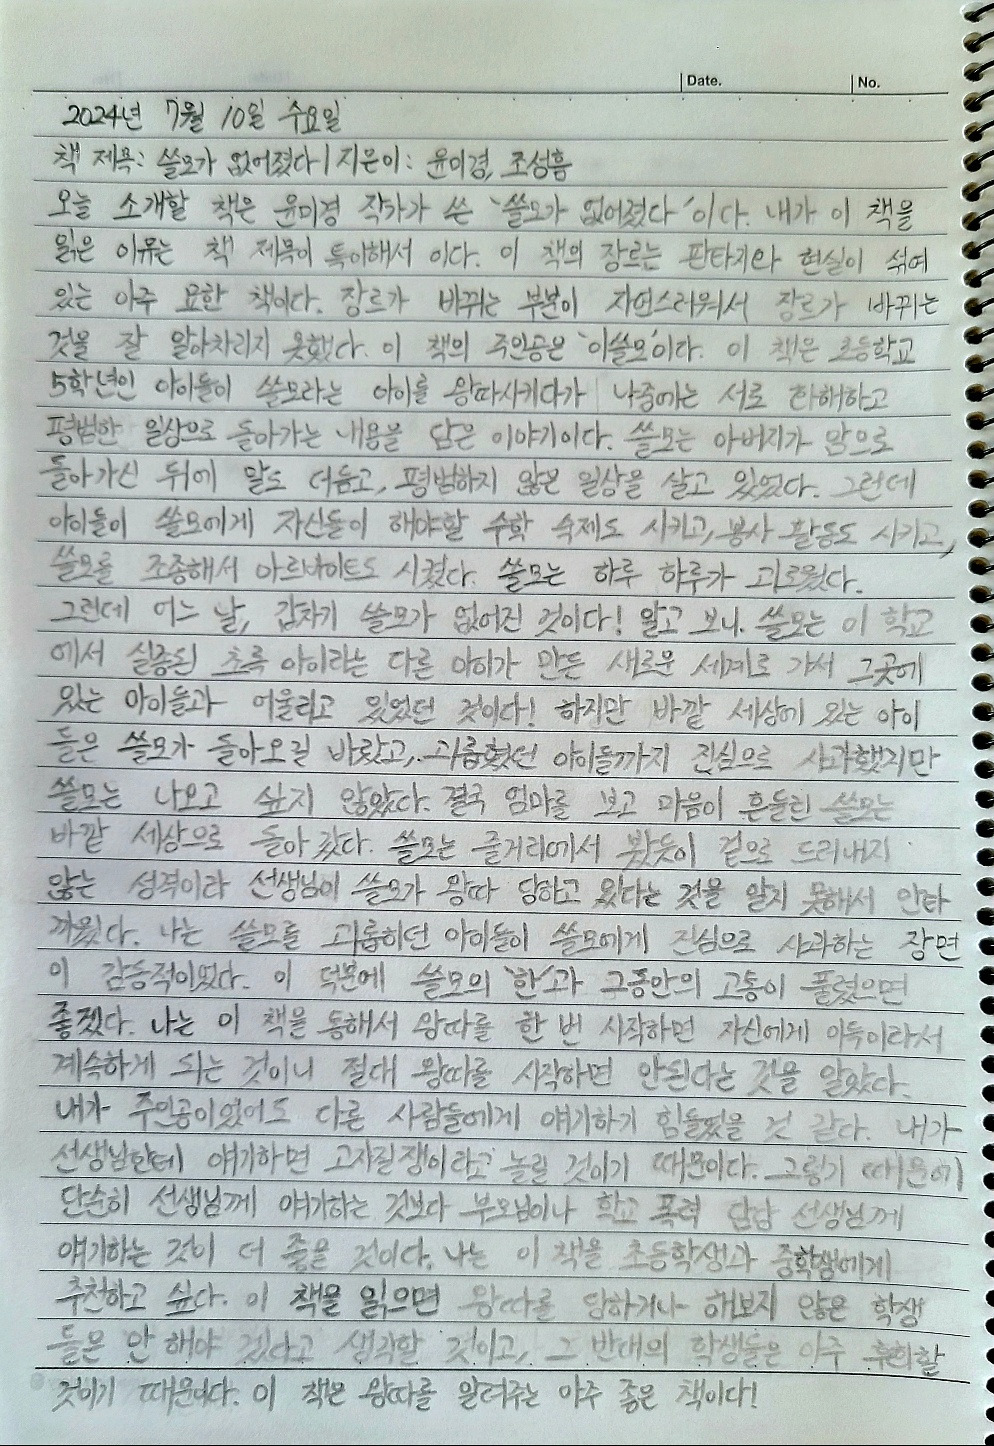 Date. No.
2024년 7월 10일 수요일
책 제목: 쓸모가 없어졌다 | 지은이: 윤미경, 조성흠
오늘 소개할 책은 윤미경 작가가 쓴 '쓸모가 없어졌다'이다. 내가 이 책을
읽은 이유는 책 제목이 특이해서 이다. 이 책의 장르는 판타지와 현실이 섞여
있는 아주 묘한 책이다. 장르가 바뀌는 부분이 자연스러워서 장르가 바뀌는
것을 잘 알아차리지 못했다. 이 책의 주인공은 '이쓸모'이다. 이 책은 초등학교
5학년인 아이들이 쓸모라는 아이를 왕따시키다가 나중에는 서로 화해하고
평범한 일상으로 돌아가는 내용을 담은 이야기이다. 쓸모는 아버지가 암으로
돌아가신 뒤에 말도 더듬고, 평범하지 않은 일상을 살고 있었다. 그런데
아이들이 쓸모에게 자신들이 해야할 수학 숙제도 시키고, 봉사 활동도 시키고,
쓸모를 조종해서 아르바이트도 시켰다. 쓸모는 하루 하루가 괴로웠다.
그런데 어느 날, 갑자기 쓸모가 없어진 것이다! 알고 보니, 쓸모는 이 학교
에서 실종된 초록 아이라는 다른 아이가 만든 새로운 세계로 가서 그곳에
있는 아이들과 어울리고 있었던 것이다! 하지만 바깥 세상에 있는 아이
들은 쓸모가 돌아오길 바랐고, 괴롭혔던 아이들까지 진심으로 사과했지만
쓸모는 나오고 싶지 않았다. 결국 엄마를 보고 마음이 흔들린 쓸모는
바깥 세상으로 돌아 갔다. 쓸모는 줄거리에서 봤듯이 겉으로 드러내지
않는 성격이라 선생님이 쓸모가 왕따 당하고 있다는 것을 알지 못해서 안타
까웠다. 나는 쓸모를 괴롭히던 아이들이 쓸모에게 진심으로 사과하는 장면
이 감동적이었다. 이 덕분에 쓸모의 '한'과 그동안의 고통이 풀렸으면
좋겠다. 나는 이 책을 통해서 왕따를 한 번 시작하면 자신에게 이득이라서
계속하게 되는 것이니 절대 왕따를 시작하면 안된다는 것을 알았다.
내가 주인공이었어도 다른 사람들에게 얘기하기 힘들었을 것 같다. 내가
선생님한테 얘기하면 고자질쟁이라고 놀릴 것이기 때문이다. 그렇기 때문에
단순히 선생님께 얘기하는 것보다 부모님이나 학교 폭력 담당 선생님께
얘기하는 것이 더 좋을 것이다. 나는 이 책을 초등학생과 중학생에게
추천하고 싶다. 이 책을 읽으면 왕따를 당하거나 해보지 않은 학생
들은 안 해야 겠다고 생각할 것이고, 그 반대의 학생들은 아주 후회할
것이기 때문이다. 이 책은 왕따를 알려주는 아주 좋은 책이다!